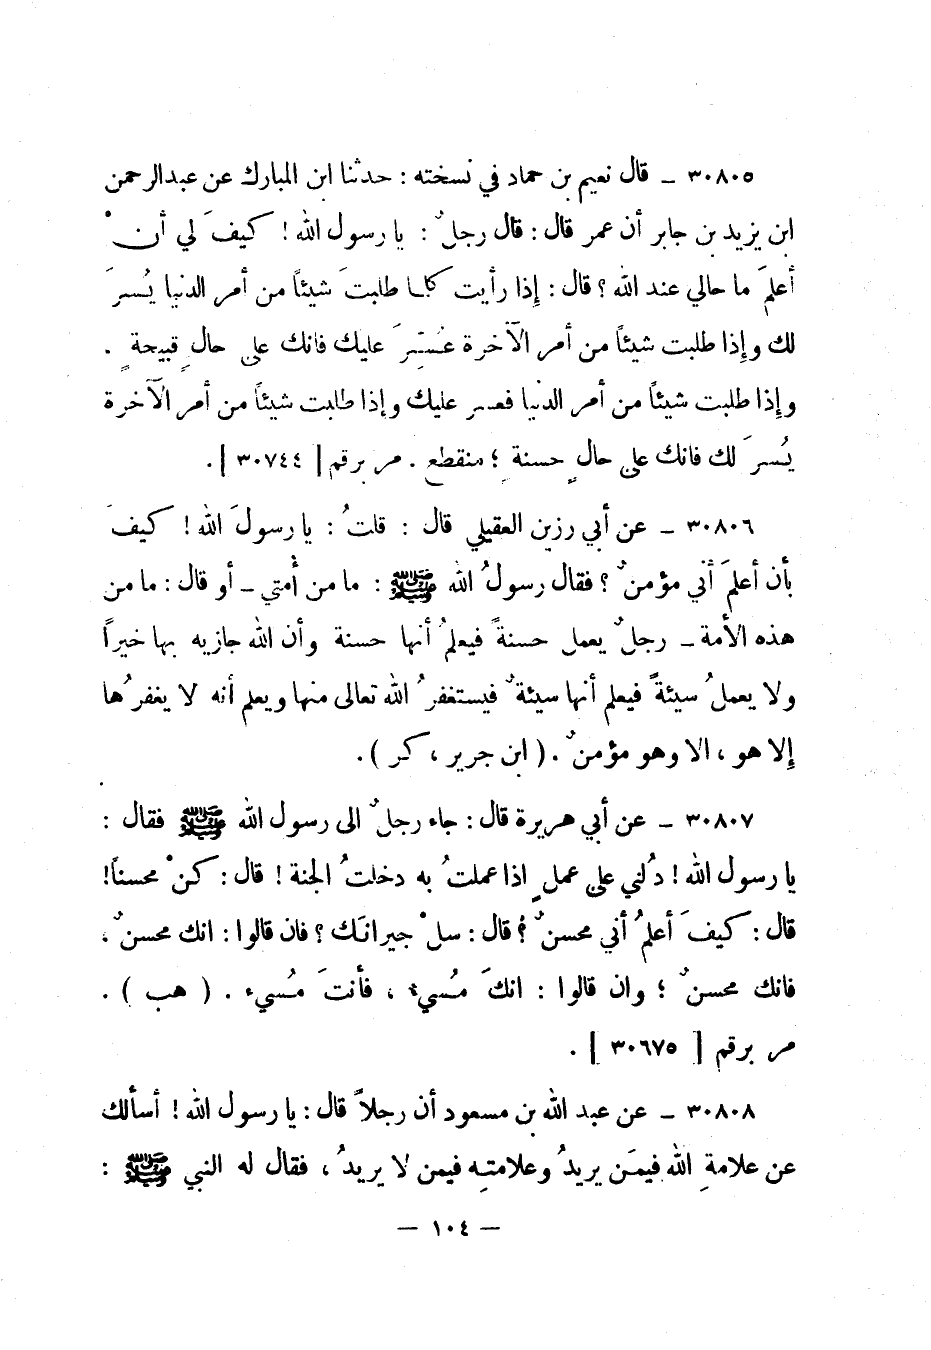 ٣٠٨٠٥ ـ قال نعيم بن حماد في نسخته : حدثنا ابن المبارك عن عبدالرحمن
ابن يزيد بن جابر أن عمر قال : قال رجلٌ : يا رسول الله ! كيفَ لي أنْ
أعلمَ ما حالي عند الله ؟ قال : إِذا رأيت كلما طلبتَ شيئاً من أمر الدنيا يُسرَ
لك وإِذا طلبت شيئاً من أمر الآخرة عُسِّرَ عليك فانك على حالٍ قبيحةٍ .
وإِذا طلبت شيئاً من أمر الدنيا فعسر عليك وإِذا طلبت شيئاً من أمر الآخرة
يُسرَ لك فانك على حالٍ حسنةٍ ؛ منقطع . مر برقم [ ٣٠٧٤٤ ] .
٣٠٨٠٦ ـ عن أبي رزين العقيلي قال : قلتُ : يا رسولَ الله ! كيفَ
بأن أعلمَ أني مؤمنٌ ؟ فقال رسولُ الله ﷺ : ما من أُمتي ـ أو قال : ما من
هذه الأمة ـ رجلٌ يعمل حسنةً فيعلمُ أنها حسنة وأن الله جازيه بها خيراً
ولا يعملُ سيئةً فيعلم أنها سيئةٌ فيستغفرُ الله تعالى منها ويعلم أنه لا يغفرُها
إِلا هو ، الا وهو مؤمنٌ . ( ابن جرير ، كر ) .
٣٠٨٠٧ ـ عن أبي هريرة قال : جاء رجلٌ الى رسول الله ﷺ فقال :
يا رسول الله ! دُلني على عملٍ اذا عملتُ به دخلتُ الجنة ! قال : كنْ محسناً!
قال : كيفَ أعلمُ أني محسنٌ ؟ قال : سلْ جيرانَك ؟ فان قالوا : انك محسنٌ ،
فانك محسنٌ ؛ وان قالوا : انكَ مُسيءٌ ، فأنتَ مُسيء . ( هب ) .
مر برقم [ ٣٠٦٧٥ ] .
٣٠٨٠٨ ـ عن عبد الله بن مسعود أن رجلاً قال : يا رسول الله ! أسألك
عن علامةِ الله فيمَن يريدُ وعلامتِه فيمن لا يريدُ ، فقال له النبي ﷺ :
— ١٠٤ —